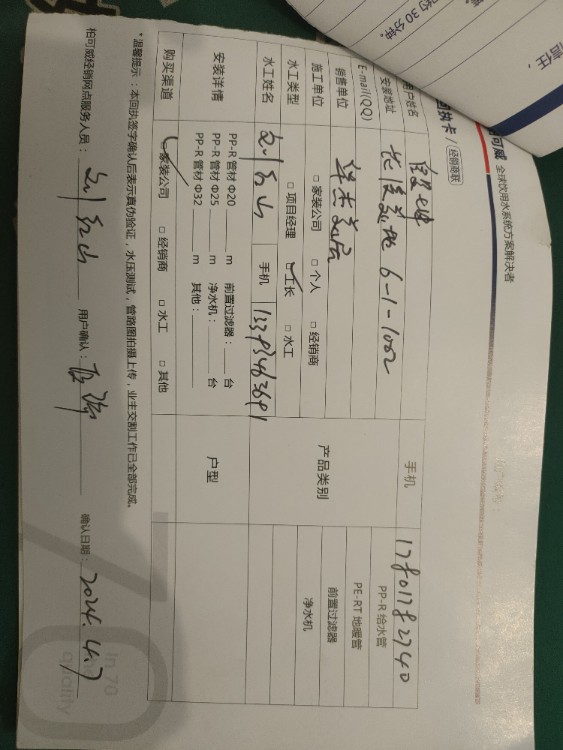 约30分钟。
信任，
可威 全球饮用水系统方案解决者
回执卡 / 经销商联
用户姓名 手机 17801782740
安装地址 6-1-1002 PP-R 给水管
E-mail(QQ) PE-RT 地暖管
销售单位 产品类别 前置过滤器
施工单位 □ 家装公司 □ 个人 □ 经销商 净水机
水工类型 □ 项目经理 工长 □ 水工
水工姓名 刘红山 手机
安装详情 PP-R 管材 Φ20 m 前置过滤器： 台 户型
PP-R 管材 Φ25 m 净水机： 台
PP-R 管材 Φ32 m 其他：
购买渠道 家装公司 □ 经销商 □ 水工 □ 其他
*温馨提示：本回执签字确认后表示真伪验证，水压测试，管路图拍摄上传，业主交割工作已全部完成。
柏可威经销网点服务人员：刘红山 用户确认： 确认日期：2024.4.7
In 70
quality
70